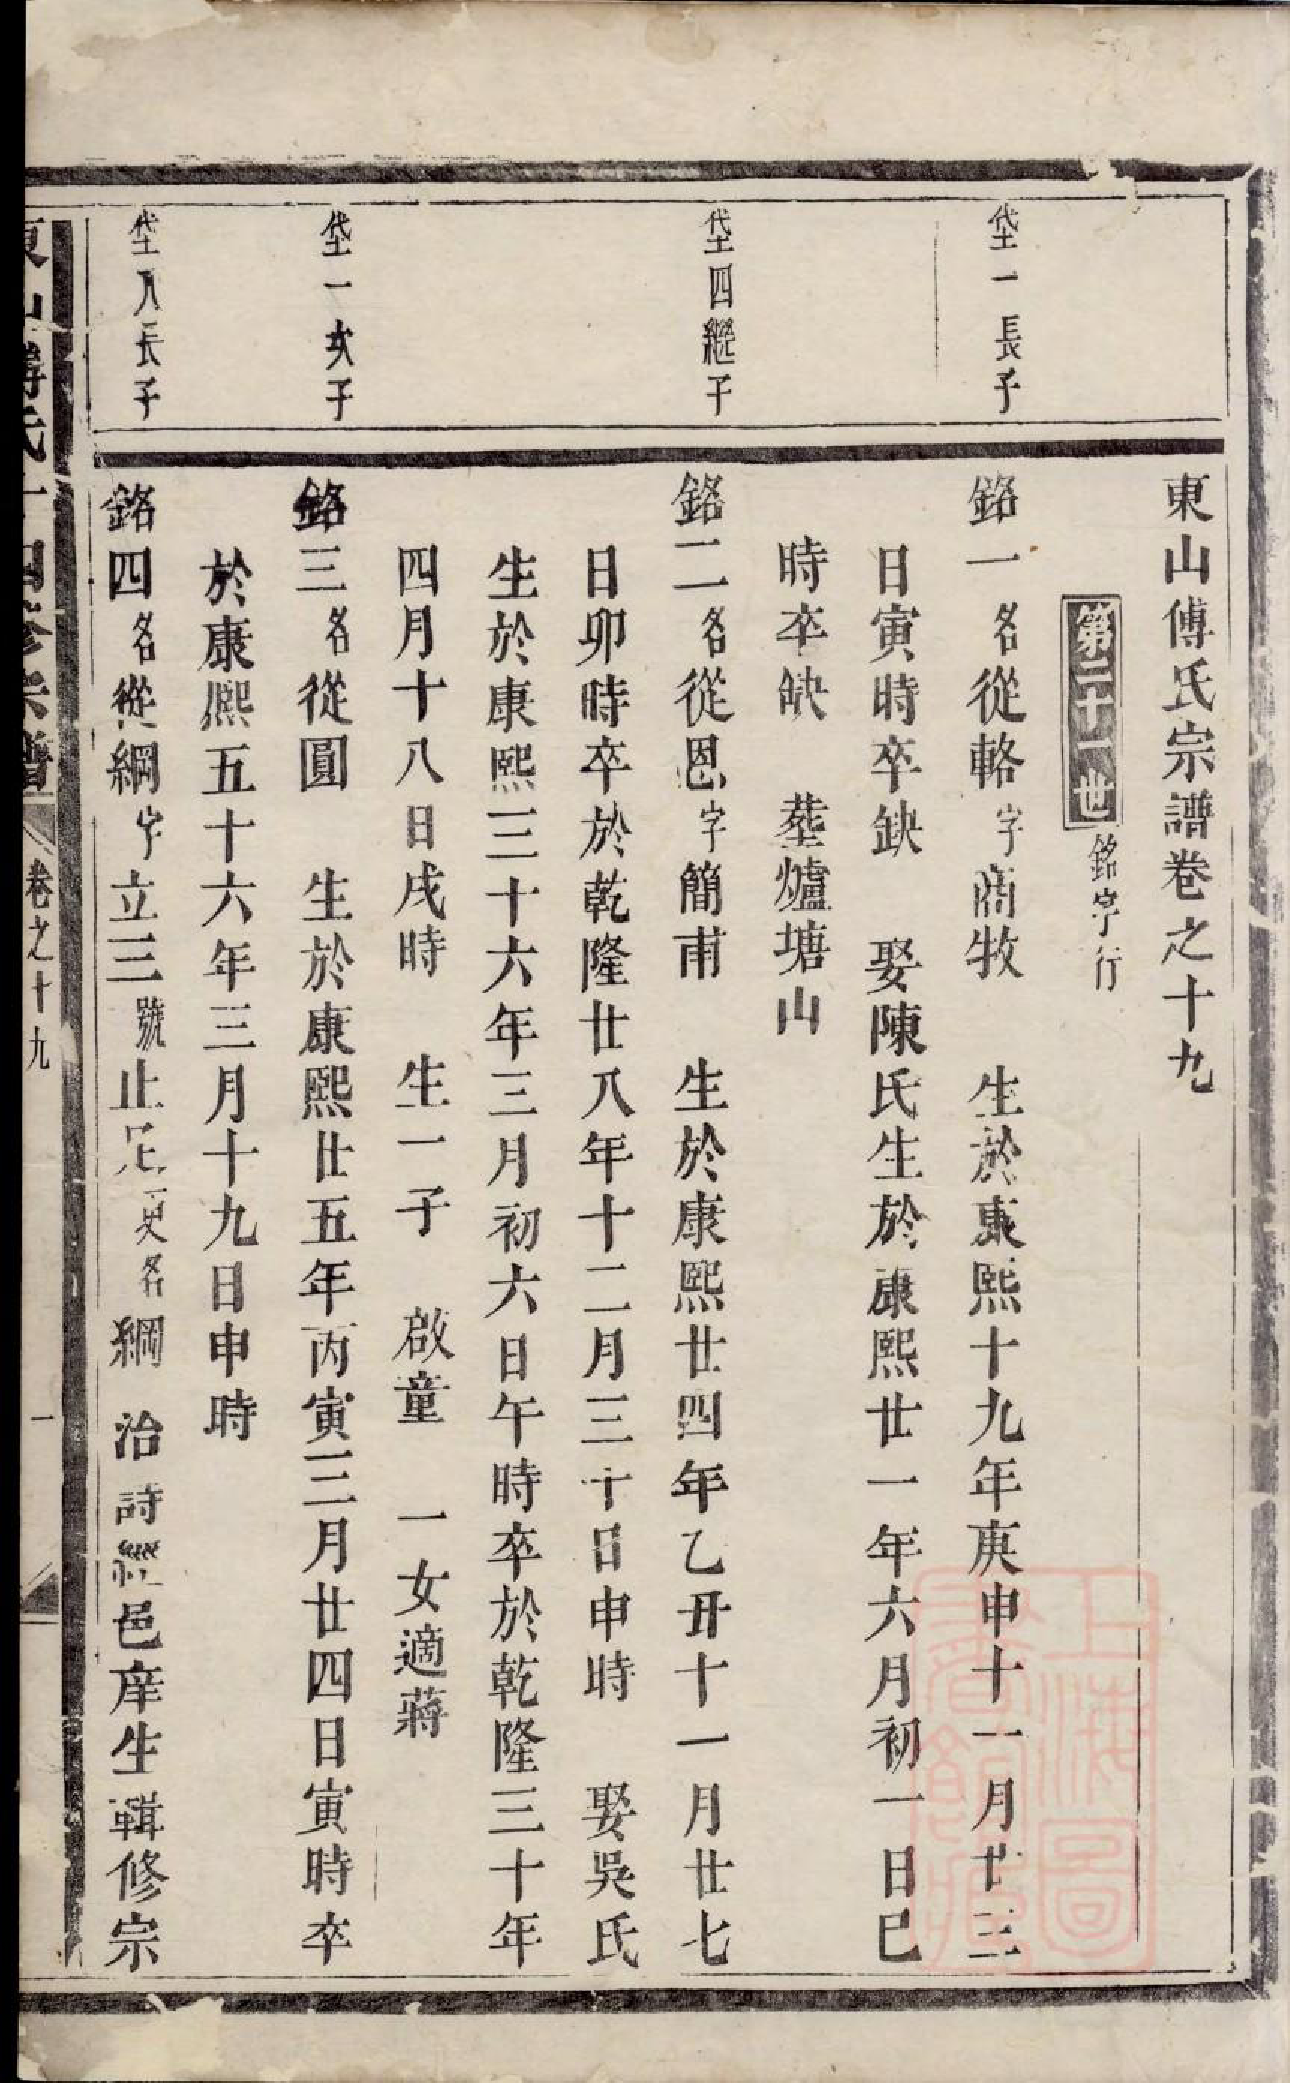 東山傅氏宗譜卷之十九
第二十一世銘字行
垡一長子
銘一名從輅字商牧　生於康熙十九年庚申十一月廿三
日寅時卒缺　娶陳氏生於康熙廿一年六月初一日巳
時卒缺　塟爐塘山
垡四繼子
銘二名從恩字簡甫　生於康熙廿四年乙丑十一月廿七
日卯時卒於乾隆廿八年十二月三十日申時　娶吳氏
生於康熙三十六年三月初六日午時卒於乾隆三十年
四月十八日戌時　生一子　啟童　一女適蔣
垡一次子
銘三名從圓　生於康熙廿五年丙寅三月廿四日寅時卒
於康熙五十六年三月十九日申時
垡八長子
銘四名從綱字立三號止足更名綱　治詩經邑庠生輯修宗
卷之十九
一
上海圖書館藏